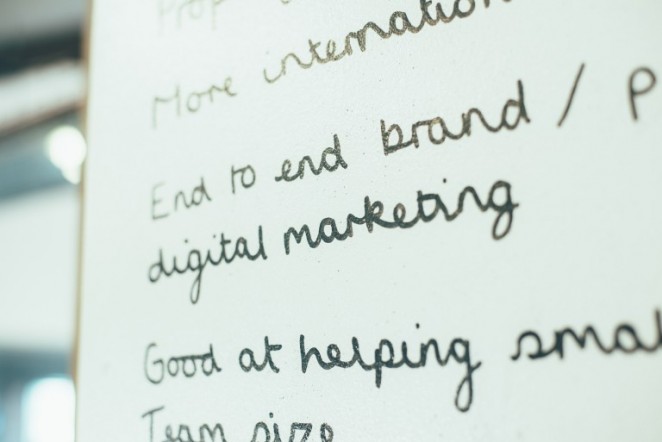 Prop
More internation
End to end brand / P
digital marketing
Good at helping smal
Team size